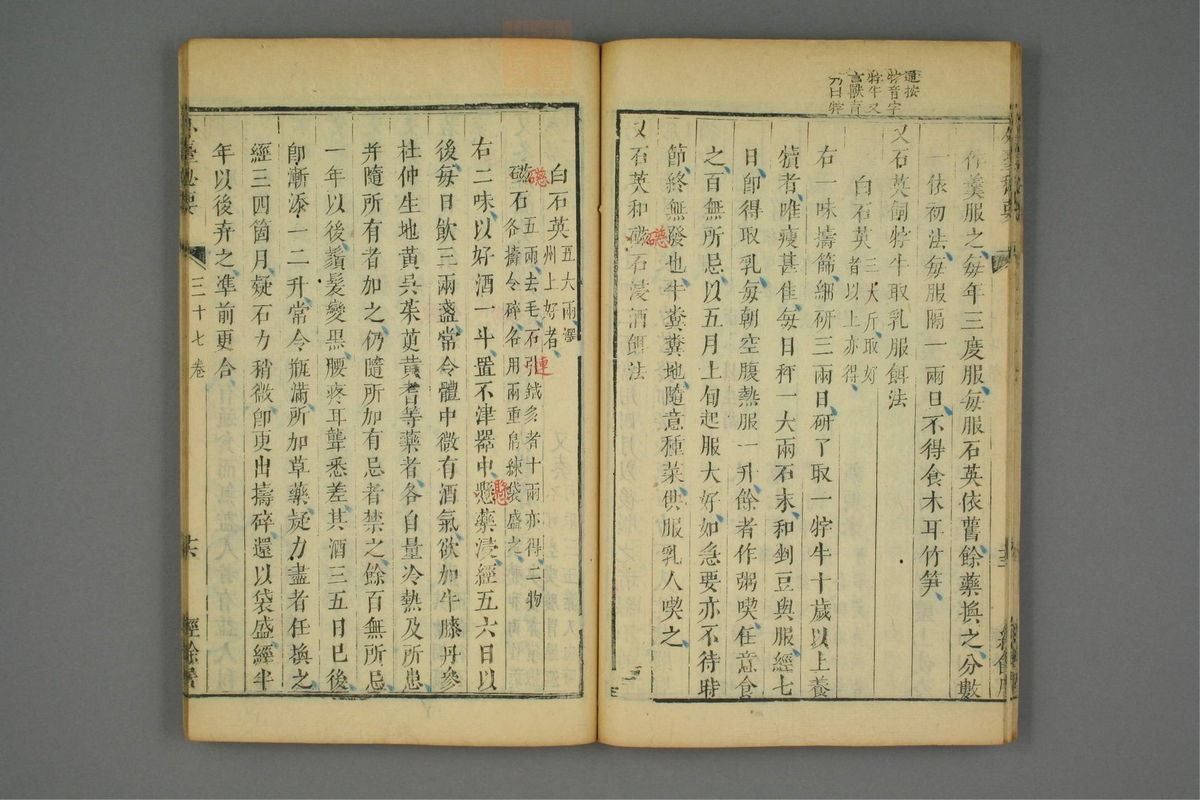 衍按
牸音字
牸牛又
言獸育
乃曰牸
作羹服之每年三度服每服石英依舊餘藥換之分數
一依初法每服隔一兩日不得食木耳竹笋
又石英飼牸牛取乳服餌法
白石英三大斤取好者以上亦得
右一味擣篩細研三兩日研了取一牸牛十歲以上養
犢者唯瘦甚佳每日秤一大兩石末和剉豆與服經七
日卽得取乳每朝空腹熱服一升餘者作粥喫任意食
之百無所忌以五月上旬起服大好如急要亦不待時
節終無發也牛糞糞地隨意種菜供服乳人喫之
又石英和磁石浸酒餌法
白石英五大兩澤州上好者
磁石五兩去毛石引鐵多者十兩亦得二物各擣令碎各用兩重帛練袋盛之
右二味以好酒一斗置不津器中懸藥浸經五六日以
後每日飲三兩盞常令體中微有酒氣欲加牛膝丹參
杜仲生地黃吳茱萸黃耆等藥者各自量冷熱及所患
幷隨所有者加之仍隨所加有忌者禁之餘百無所忌
一年以後鬚髮變黑腰疼耳聾悉差其酒三五日已後
卽漸添一二升常令瓶滿所加草藥疑力盡者任換之
經三四箇月疑石力稍微卽更出擣碎還以袋盛經半
年以後弃之準前更合
三十七卷
經餘居